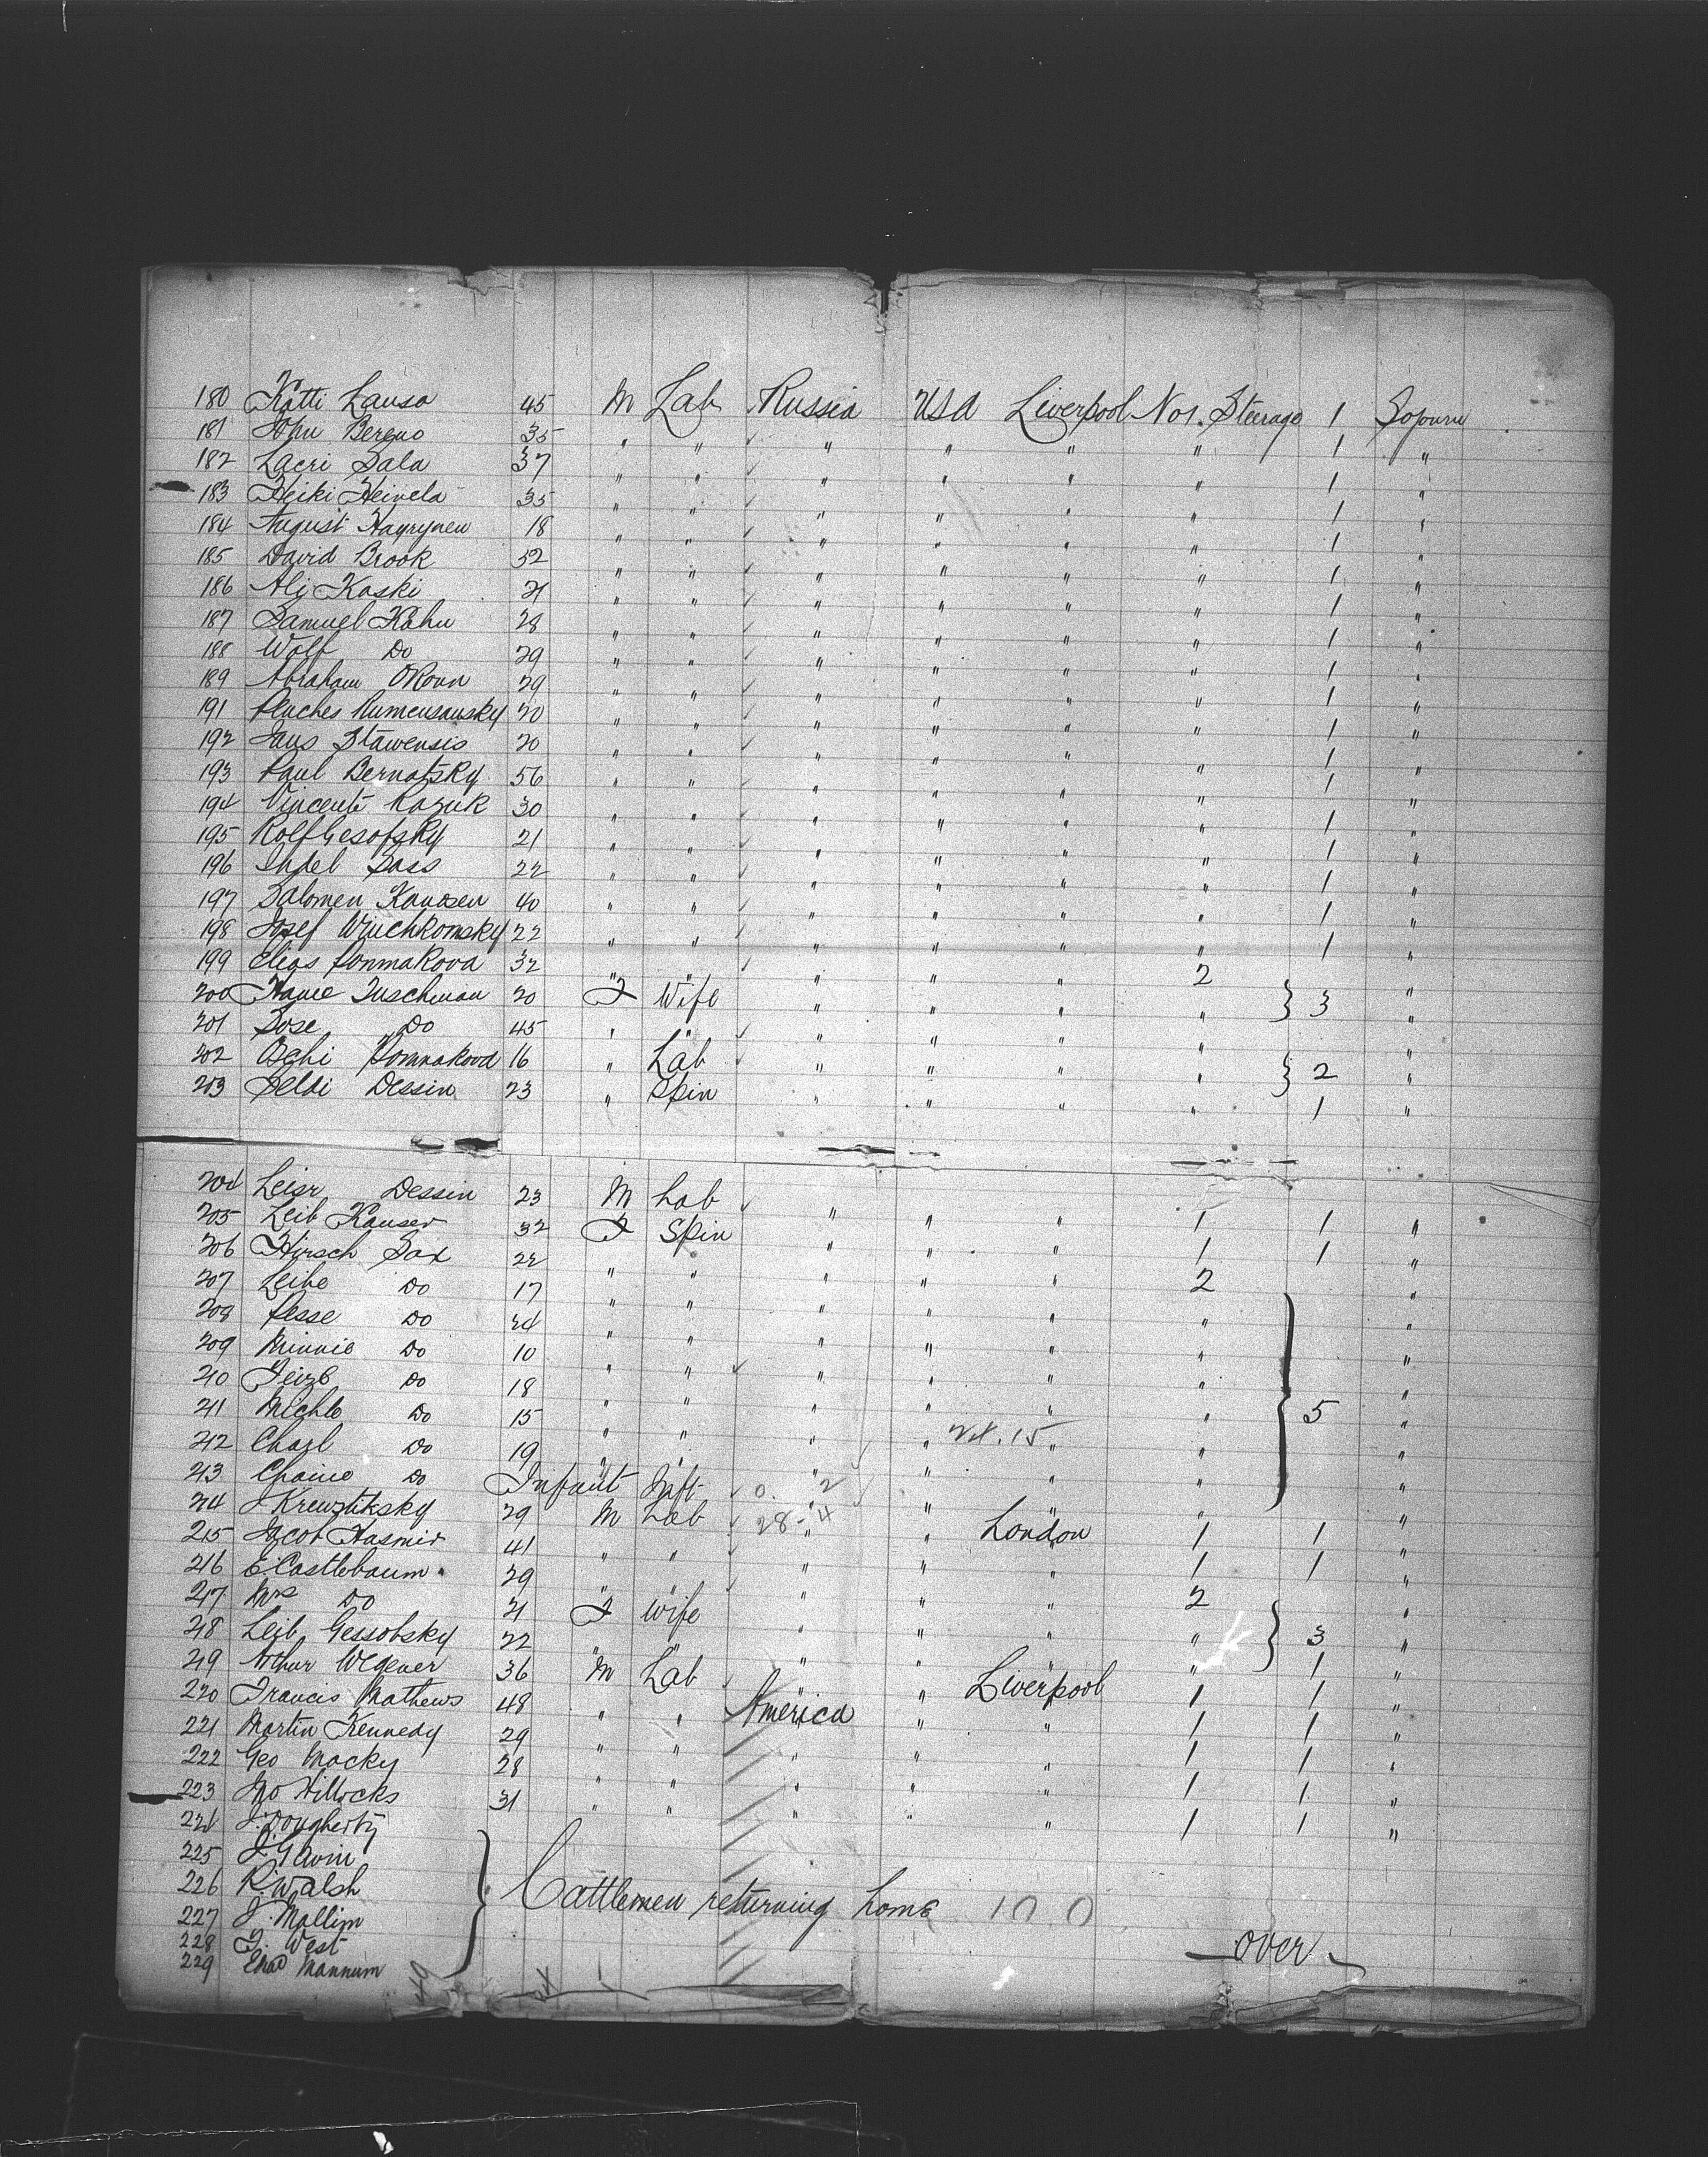 180 Katti Lauso 45 M Lab Russia USA Liverpool No 1. Steerage 1 Sojourn
181 John Bereno 35 " " " " " " 1 "
182 Lacri Sala 37 " " " " " " 1 "
183 Heiki Heivela 35 " " " " " " 1 "
184 August Hayrynen 18 " " " " " " 1 "
185 David Brook 52 " " " " " " 1 "
186 Ali Koski 21 " " " " " " 1 "
187 Samuel Kahn 28 " " " " " " 1 "
188 Wolf Do 29 " " " " " " 1 "
189 Abraham 29 " " " " " " 1 "
191 20 " " " " " " 1 "
192 Jans Stawensis 20 " " " " " " 1 "
193 Paul Bernatsky 56 " " " " " " 1 "
194 Vincente Kozuk 30 " " " " " " 1 "
195 Rolf Gesofsky 21 " " " " " " 1 "
196 Sass 22 " " " " " " 1 "
197 Salomen 40 " " " " " " 1 "
198 Josef Wruchkomsky 22 " " " " " " 1 "
199 Elias Ponmakova 32 " " " " " 2 "
200 Tuschman 20 F Wife " " " " } 3 "
201 Do 45 " " " " " " "
202 16 " Lab " " " " } 2 "
203 Dessin 23 " Spin " " " " 1 "
204 Leisr Dessin 23 M Lab " " " 1 1 "
205 Leib Kauser 32 F Spin " " " 1 1 "
206 Hirsch Sax 22 " " " " " 2 "
207 Leibe Do 17 " " " " " " "
208 Pesse Do 24 " " " " " " "
209 Minnie Do 10 " " " " " " "
210 Do 18 " " " " " " 5 "
211 Michle Do 15 " " " " " " "
212 Do 19 " " " " " " "
213 Do Infant Inft " " " " "
214 J Krewstiksky 29 M Lab " " London 1 1 "
215 Jacob Hasmir 41 " " " " " 1 1 "
216 E Castlebaum 29 " " " " " 2 "
217 Mrs Do 21 F Wife " " " " } 3 "
218 Leib Gessobsky 22 " " " " " " 1 "
219 Arthur Wegener 36 M Lab " " Liverpool 1 1 "
220 Francis Mathews 48 " " America " " 1 1 "
221 Martin Kennedy 29 " " " " " 1 1 "
222 Geo Macky 28 " " " " " 1 1 "
223 Jno Hillocks 31 " " " " " 1 1 "
224 J. Dougherty
225 J. Gavin
226 R. Walsh
Cattlemen returning home 100
227 J. Mallim
228 F. West
over
229 Chas Mannum